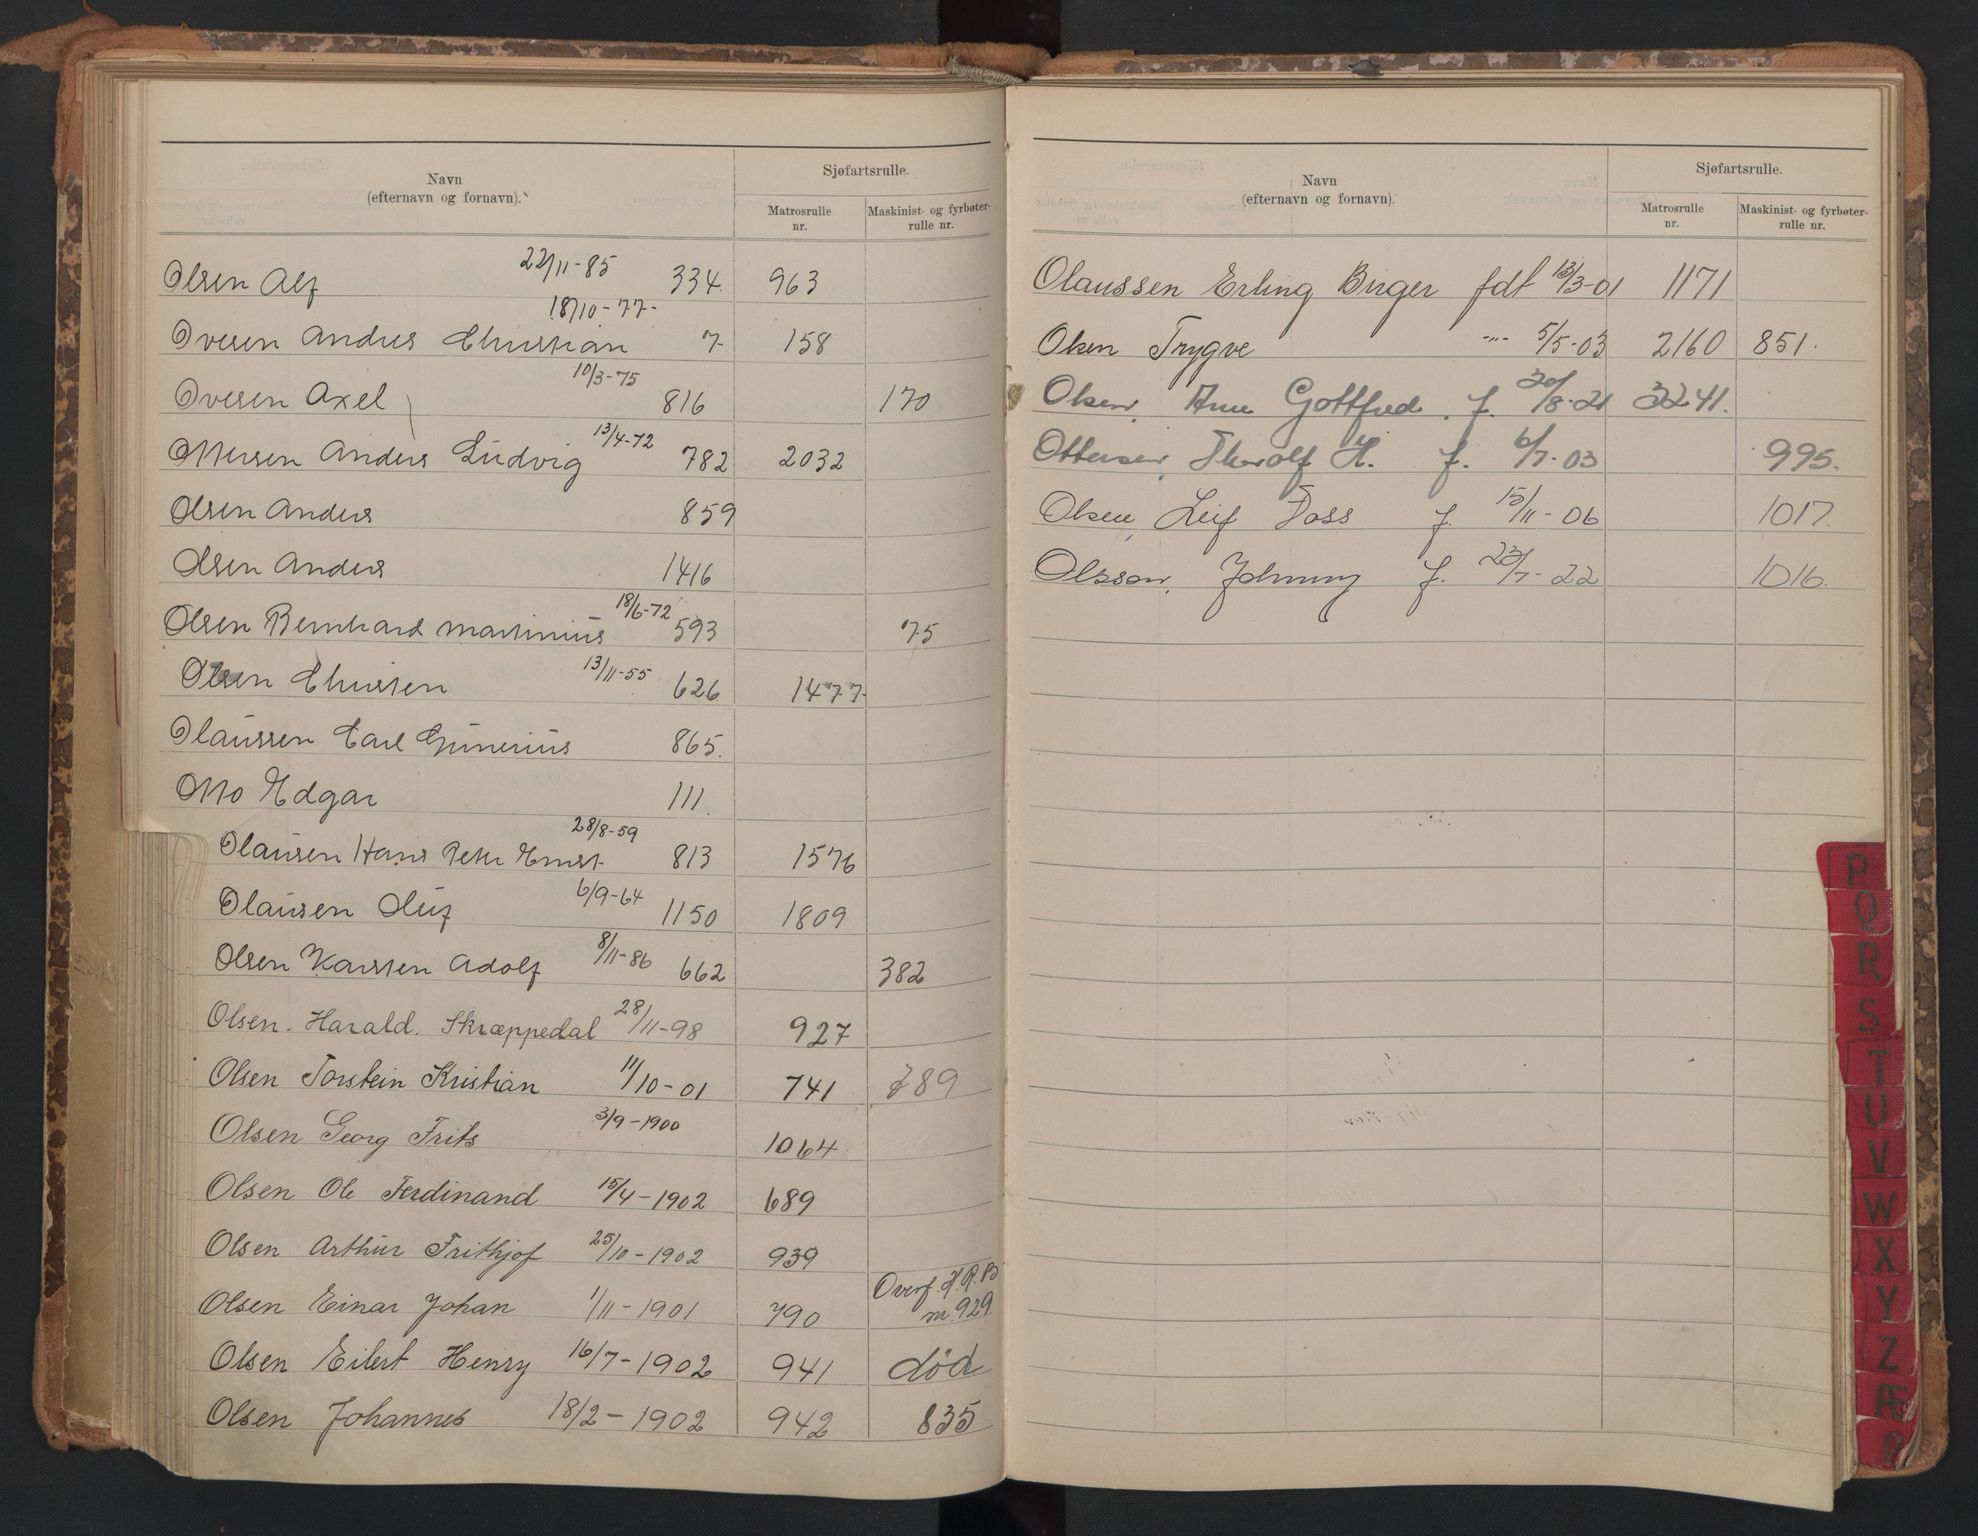 Navn
(efternavn og fornavn).
Sjøfartsrulle.
Matrosrulle nr.
Maskinist- og fyrbøter-rulle nr.
Olsen Alf 22/11-85 334. 963
Ovesen Anders Christian 18/10-77- 7- 158
Ovesen Axel 10/3-75 816 170
Ottersen Anders Ludvig 13/4-72 782 2032
Olsen Anders 859
Olsen Anders 1416
Olsen Bernhard Martinius 18/6-72 593 75
Olsen Christen 13/11-55 626 1477-
Olaussen Carl Gunerius 865.
Otto Edgar 111.
Olausen Hans Peter Ernst 28/8-59 813 1576
Olausen Oluf 6/9-64 1150 1809
Olsen Karsten Adolf 8/11-86 662 382
Olsen. Harald. Skræppedal 28/11-98 927
Olsen Torstein Kristian 11/10-01 741 789
Olsen Georg Frits 3/9-1900 1064
Olsen Ole Ferdinand 15/4-1902 689
Olsen Arthur Frithjof 25/10-1902 939
Olsen Einar Johan 1/11-1901 790 Overf. H.R.B
nr. 929
Olsen Eilert Henry 16/7-1902 941 død
Olsen Johannes 18/2-1902 942 835
Navn
(efternavn og fornavn).
Sjøfartsrulle.
Matrosrulle nr.
Maskinist- og fyrbøter-rulle nr.
Olaussen Erling Birger fdt 13/3-01 1171
Olsen Trygve -"- 5/5-03 2160 851.
Olsen, Arne Gottfred. f. 30/8-21 3241.
Ottersen, Thorolf H. f. 6/7-03 995.
Olsen, Leif Foss f. 15/11-06 1017.
Olsson, Johnny f. 23/7-22 1016.
P
Q
R
S
T
U
V
W
X
Y
Z
Æ
Ø